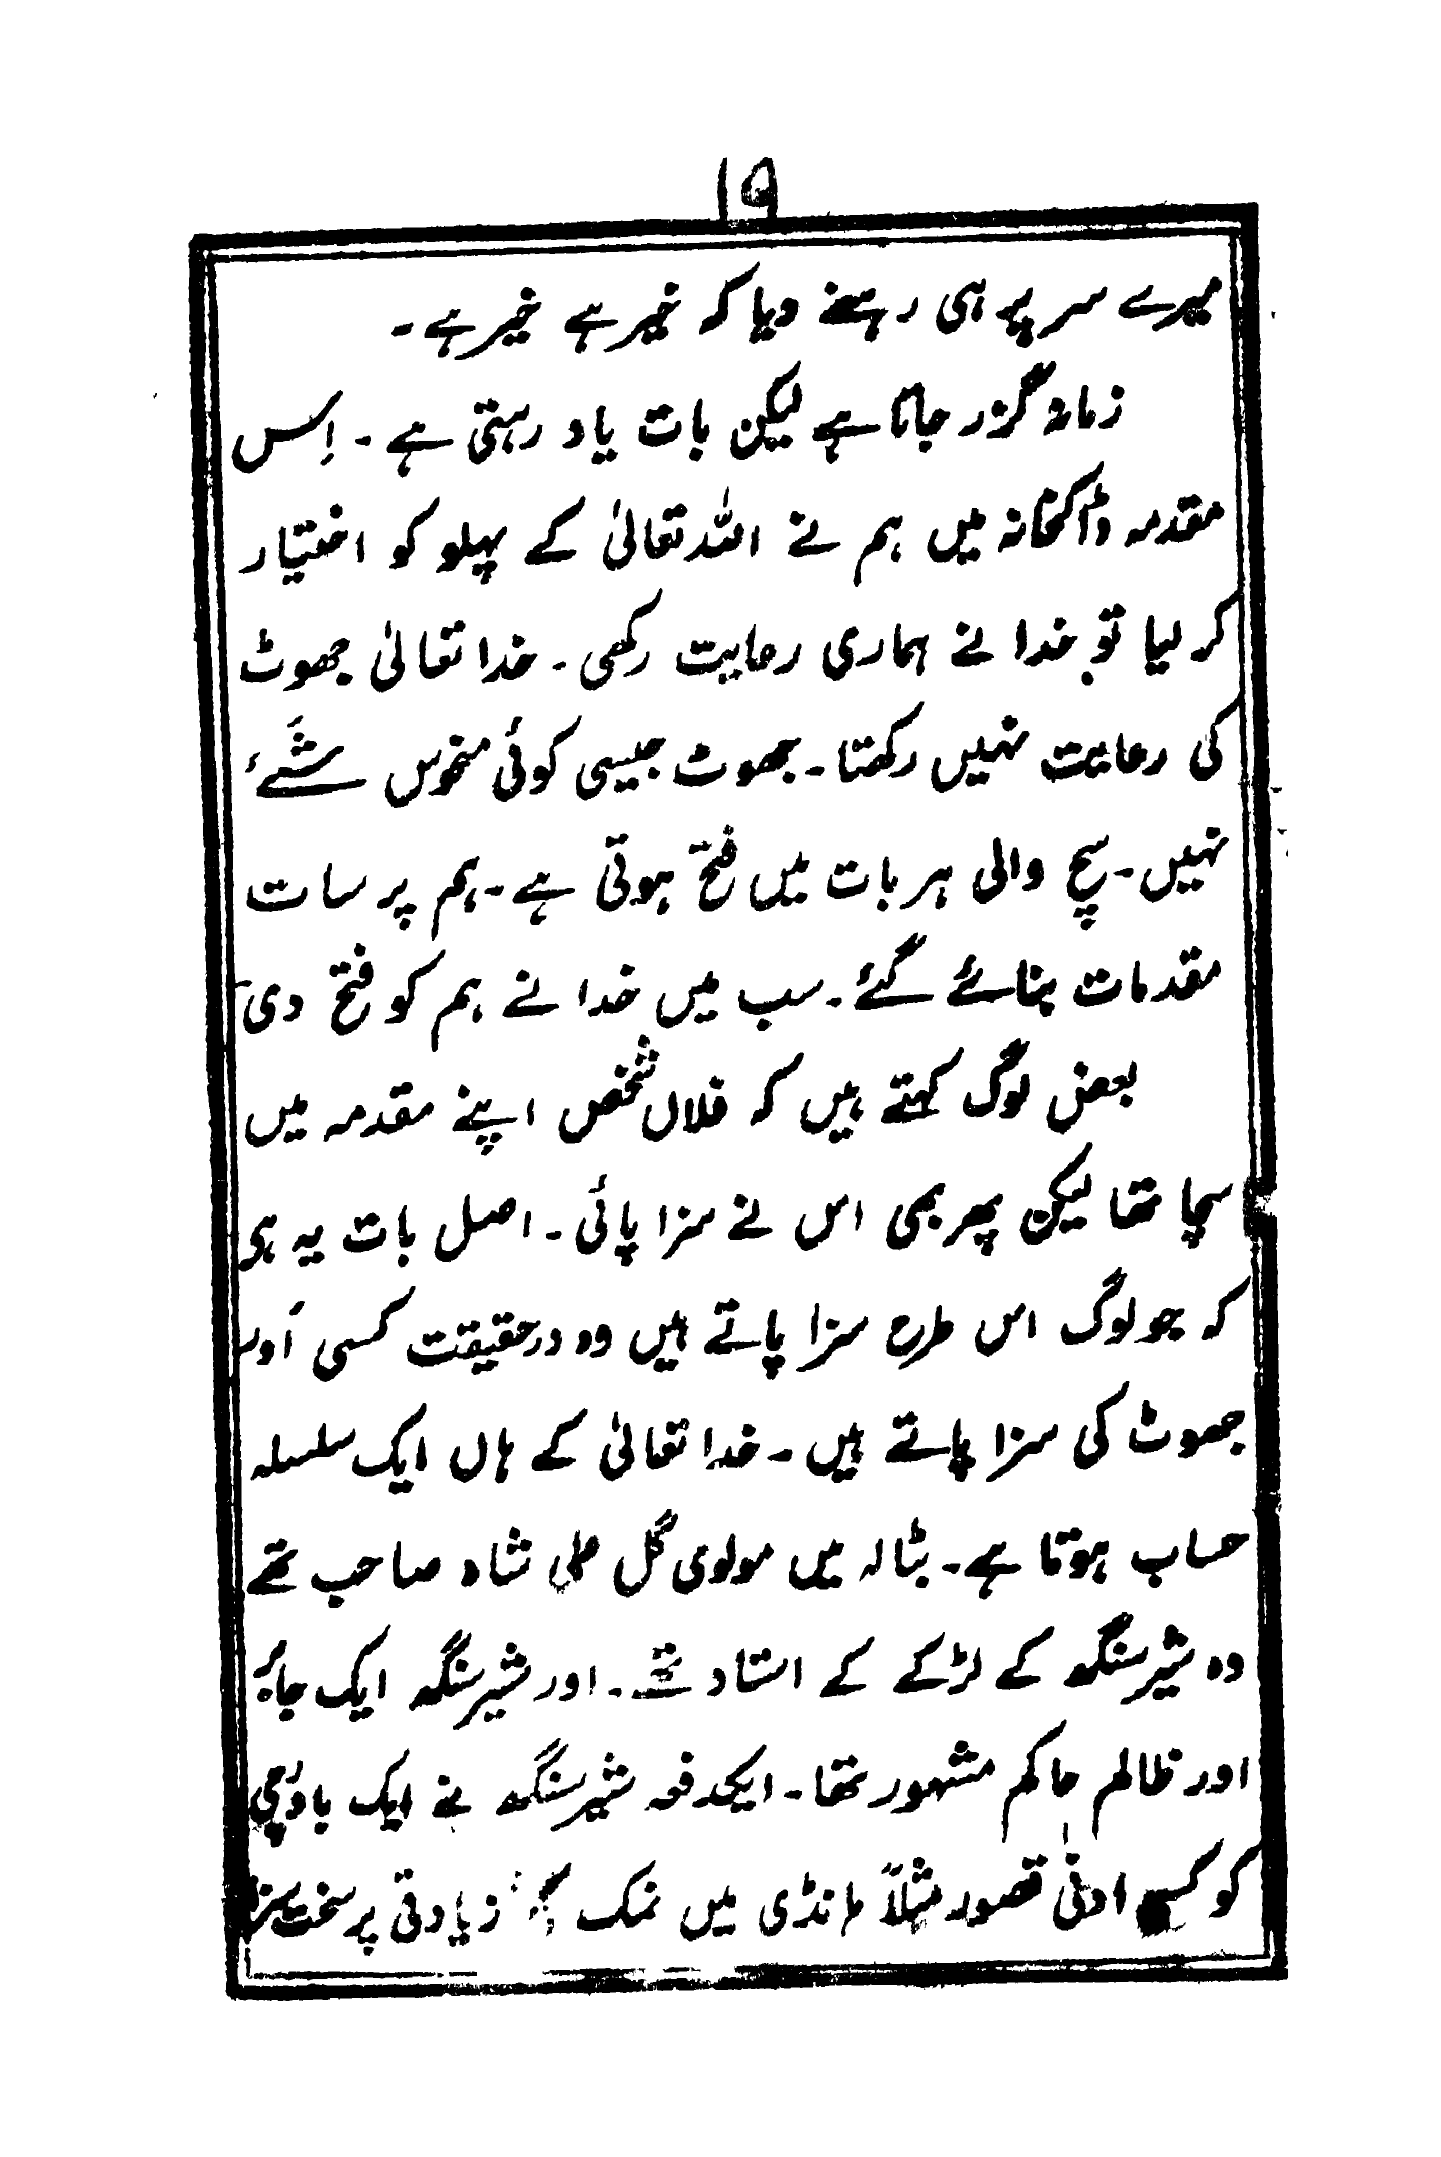 ۱۹
میرے سر پر ہی رہنے دیا کہ خیر ہے خیر ہے۔
زمانہ گزر جاتا ہے لیکن بات یاد رہتی ہے۔ اِس
مقدمہ ڈاکخانہ میں ہم نے اللہ تعالیٰ کے پہلو کو اختیار
کر لیا تو خدا نے ہماری رعایت رکھی۔ خدا تعالیٰ جھوٹ
کی رعایت نہیں رکھتا۔ جھوٹ جیسی کوئی منحوس شَے
نہیں۔ سچ والی ہر بات میں فتح ہوتی ہے۔ ہم پر سات
مقدمات بنائے گئے۔ سب میں خدا نے ہم کو فتح دی
بعض لوگ کہتے ہیں کہ فلاں شخص اپنے مقدمہ میں
سچا تھا لیکن پھر بھی اس نے سزا پائی۔ اصل بات یہ ہی
کہ جو لوگ اس طرح سزا پاتے ہیں وہ درحقیقت کسی اَور
جھوٹ کی سزا پاتے ہیں۔ خدا تعالیٰ کے ہاں ایک سلسلہ
حساب ہوتا ہے۔ بٹالہ میں مولوی گل علی شاہ صاحب تھے
وہ شیر سنگھ کے لڑکے کے استاد تھے۔ اور شیر سنگھ ایک جابر
اور ظالم حاکم مشہور تھا۔ ایکدفعہ شیر سنگھ نے ایک باورچی
کو کسی ادنیٰ قصور مثلاً ہانڈی میں نمک کی زیادتی پر سخت سزا